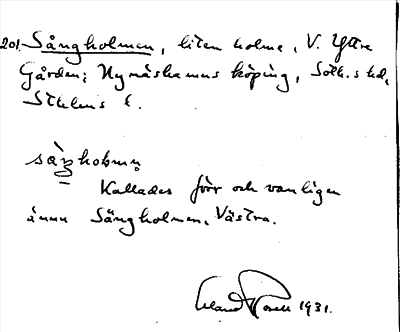 201. Sångholmen, liten holme, V. Yttre
Gården; Nynäshamns köping, Soth.s hd,
Sthlms l.
Kallades förr och vanligen
ännu Sångholmen, Västra.
1931.